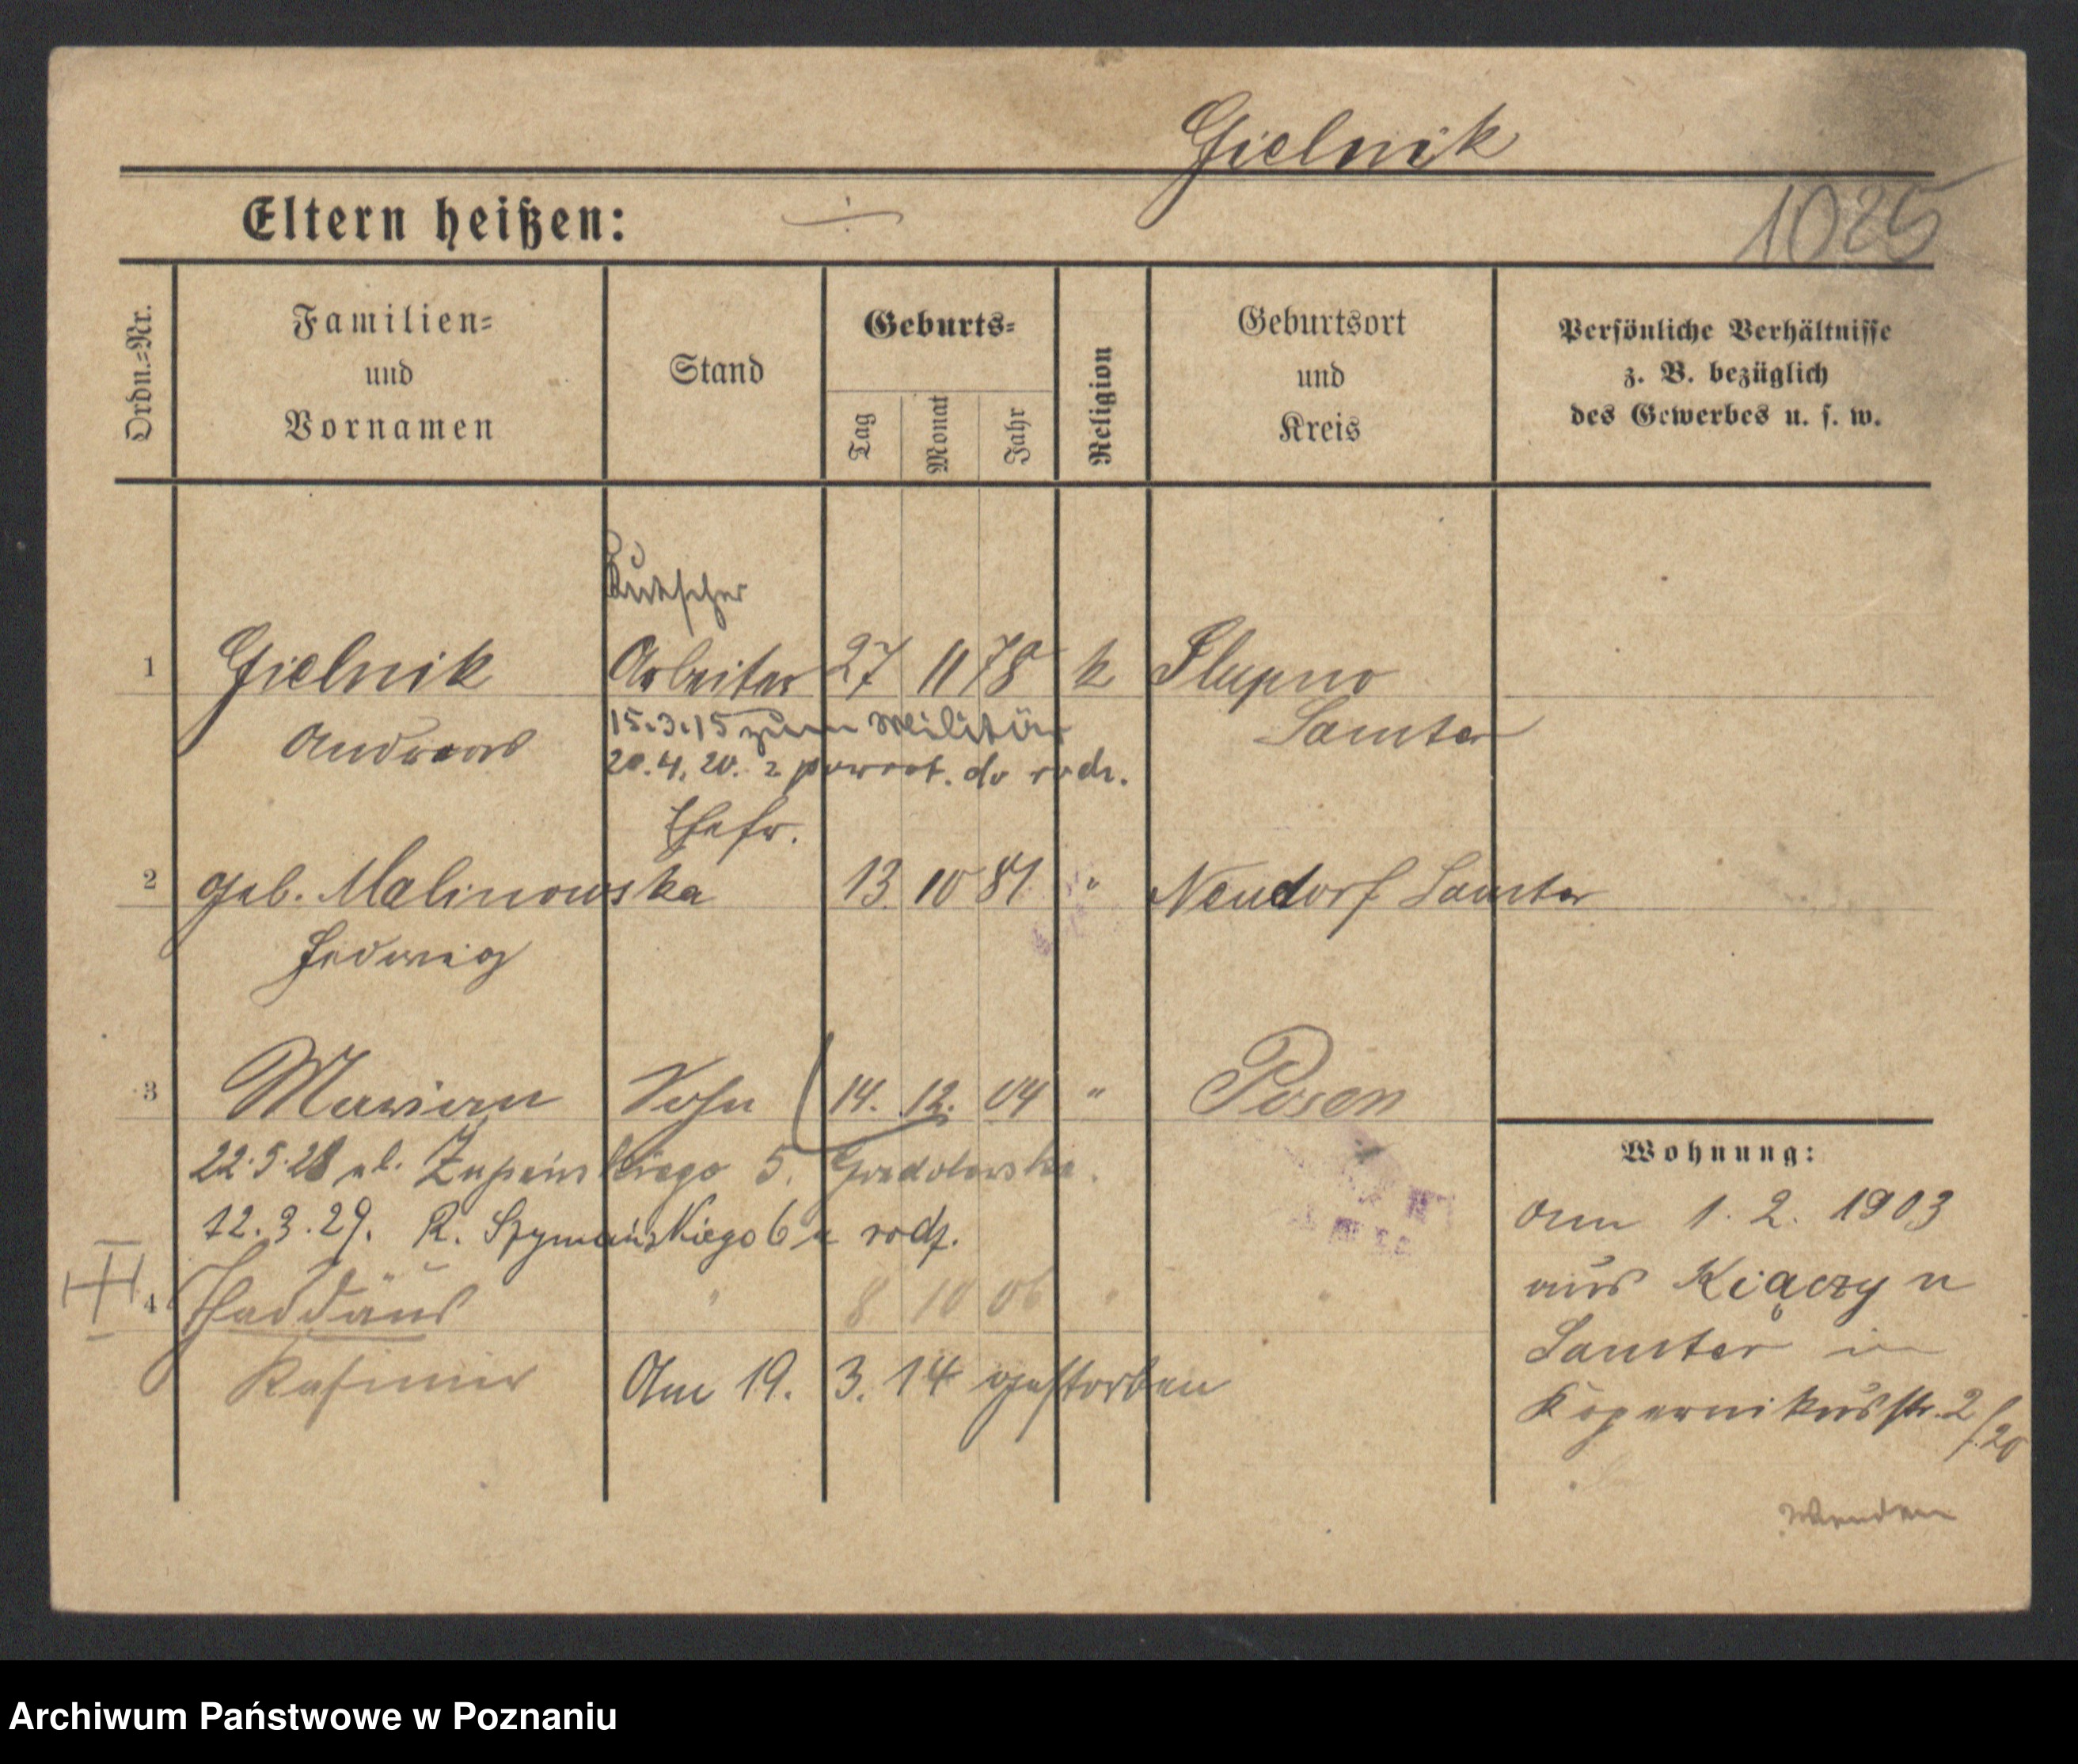 Gielnik
1025
Eltern heißen: ÷
Ordn.=Nr.
Familien= und Vornamen
Stand
Geburts=
Tag
Monat
Jahr
Religion
Geburtsort und Kreis
Persönliche Verhältnisse
z. B. bezüglich
des Gewerbes u. s. w.
Kutscher
1 Gielnik Arbeiter 27 11 78 k Slupno
Andreas Samter
15.3.15 zum Militär
20.4.20. z powrot. do rodz.
Ehefr.
2 geb. Malinowska 13 10 81 " Neudorf Samter
Hedwig
3 Marian Sohn 14. 12. 04 " Posen
22.5.28 ul. Żupańskiego 5.
12.3.29. R. Szymańskiego 6 u rodz.
4 Thaddäus " 8 10 06 "
Kasimir Am 19. 3. 14 gestorben
Wohnung:
am 1. 2. 1903
aus Kiączyn
Samter in
Kopernikusstr. 2
/20
Wenden
Archiwum Państwowe w Poznaniu